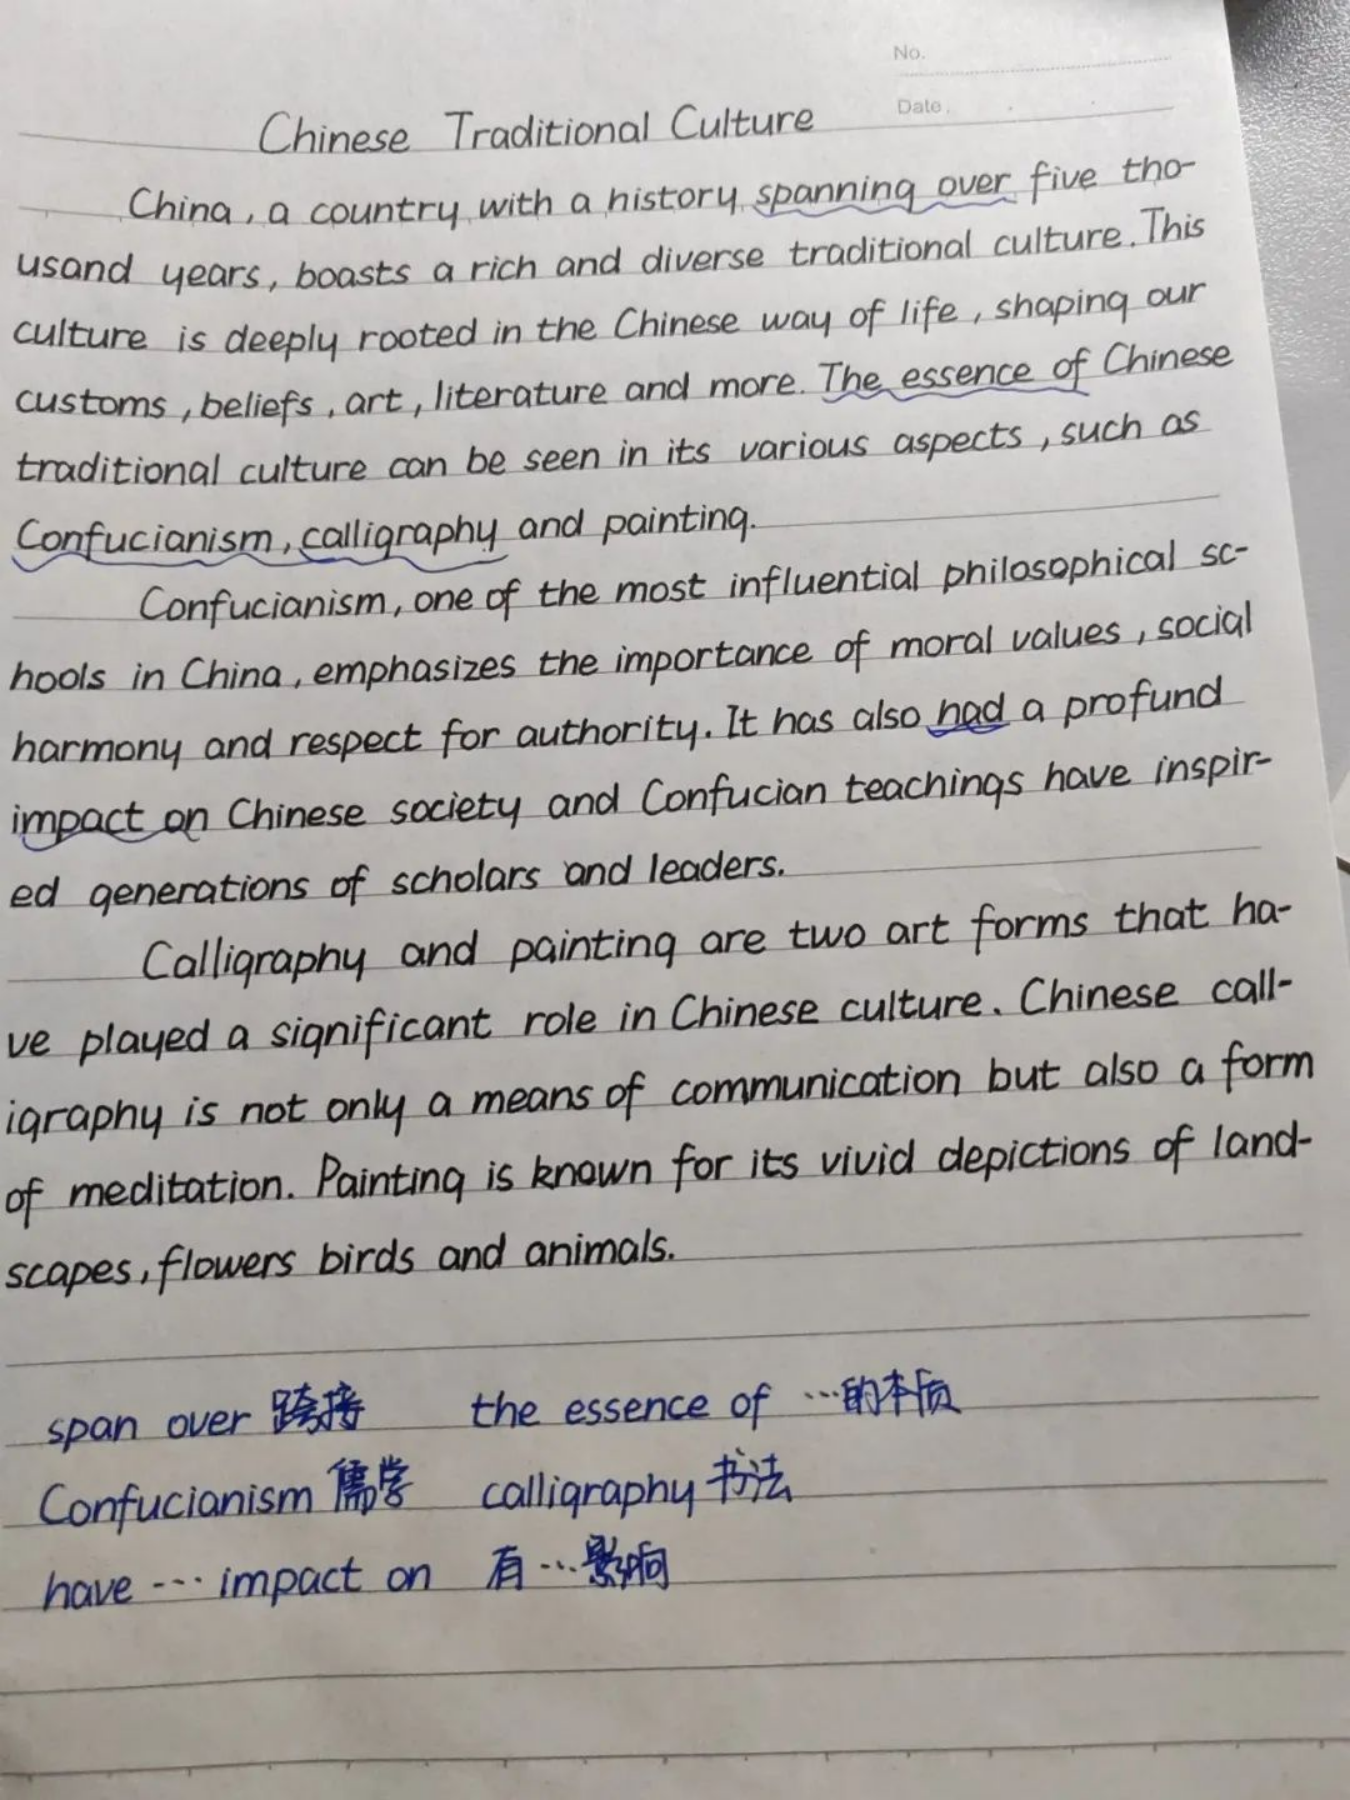 No.
Date.
Chinese Traditional Culture
China, a country with a history spanning over five tho-
usand years, boasts a rich and diverse traditional culture. This
culture is deeply rooted in the Chinese way of life, shaping our
customs, beliefs, art, literature and more. The essence of Chinese
traditional culture can be seen in its various aspects, such as
Confucianism, calligraphy and painting.
Confucianism, one of the most influential philosophical sc-
hools in China, emphasizes the importance of moral values, social
harmony and respect for authority. It has also had a profund
impact on Chinese society and Confucian teachings have inspir-
ed generations of scholars and leaders.
Calligraphy and painting are two art forms that ha-
ve played a significant role in Chinese culture. Chinese call-
igraphy is not only a means of communication but also a form
of meditation. Painting is known for its vivid depictions of land-
scapes, flowers birds and animals.
span over 跨接 the essence of …的本质
Confucianism 儒学 calligraphy 书法
have --- impact on 有…影响